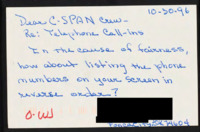 10-30-96
Dear C-SPAN Crew-
Re: Telephone Call-ins
In the cause of fairness,
how about listing the phone
numbers on your screen in
reverse order?